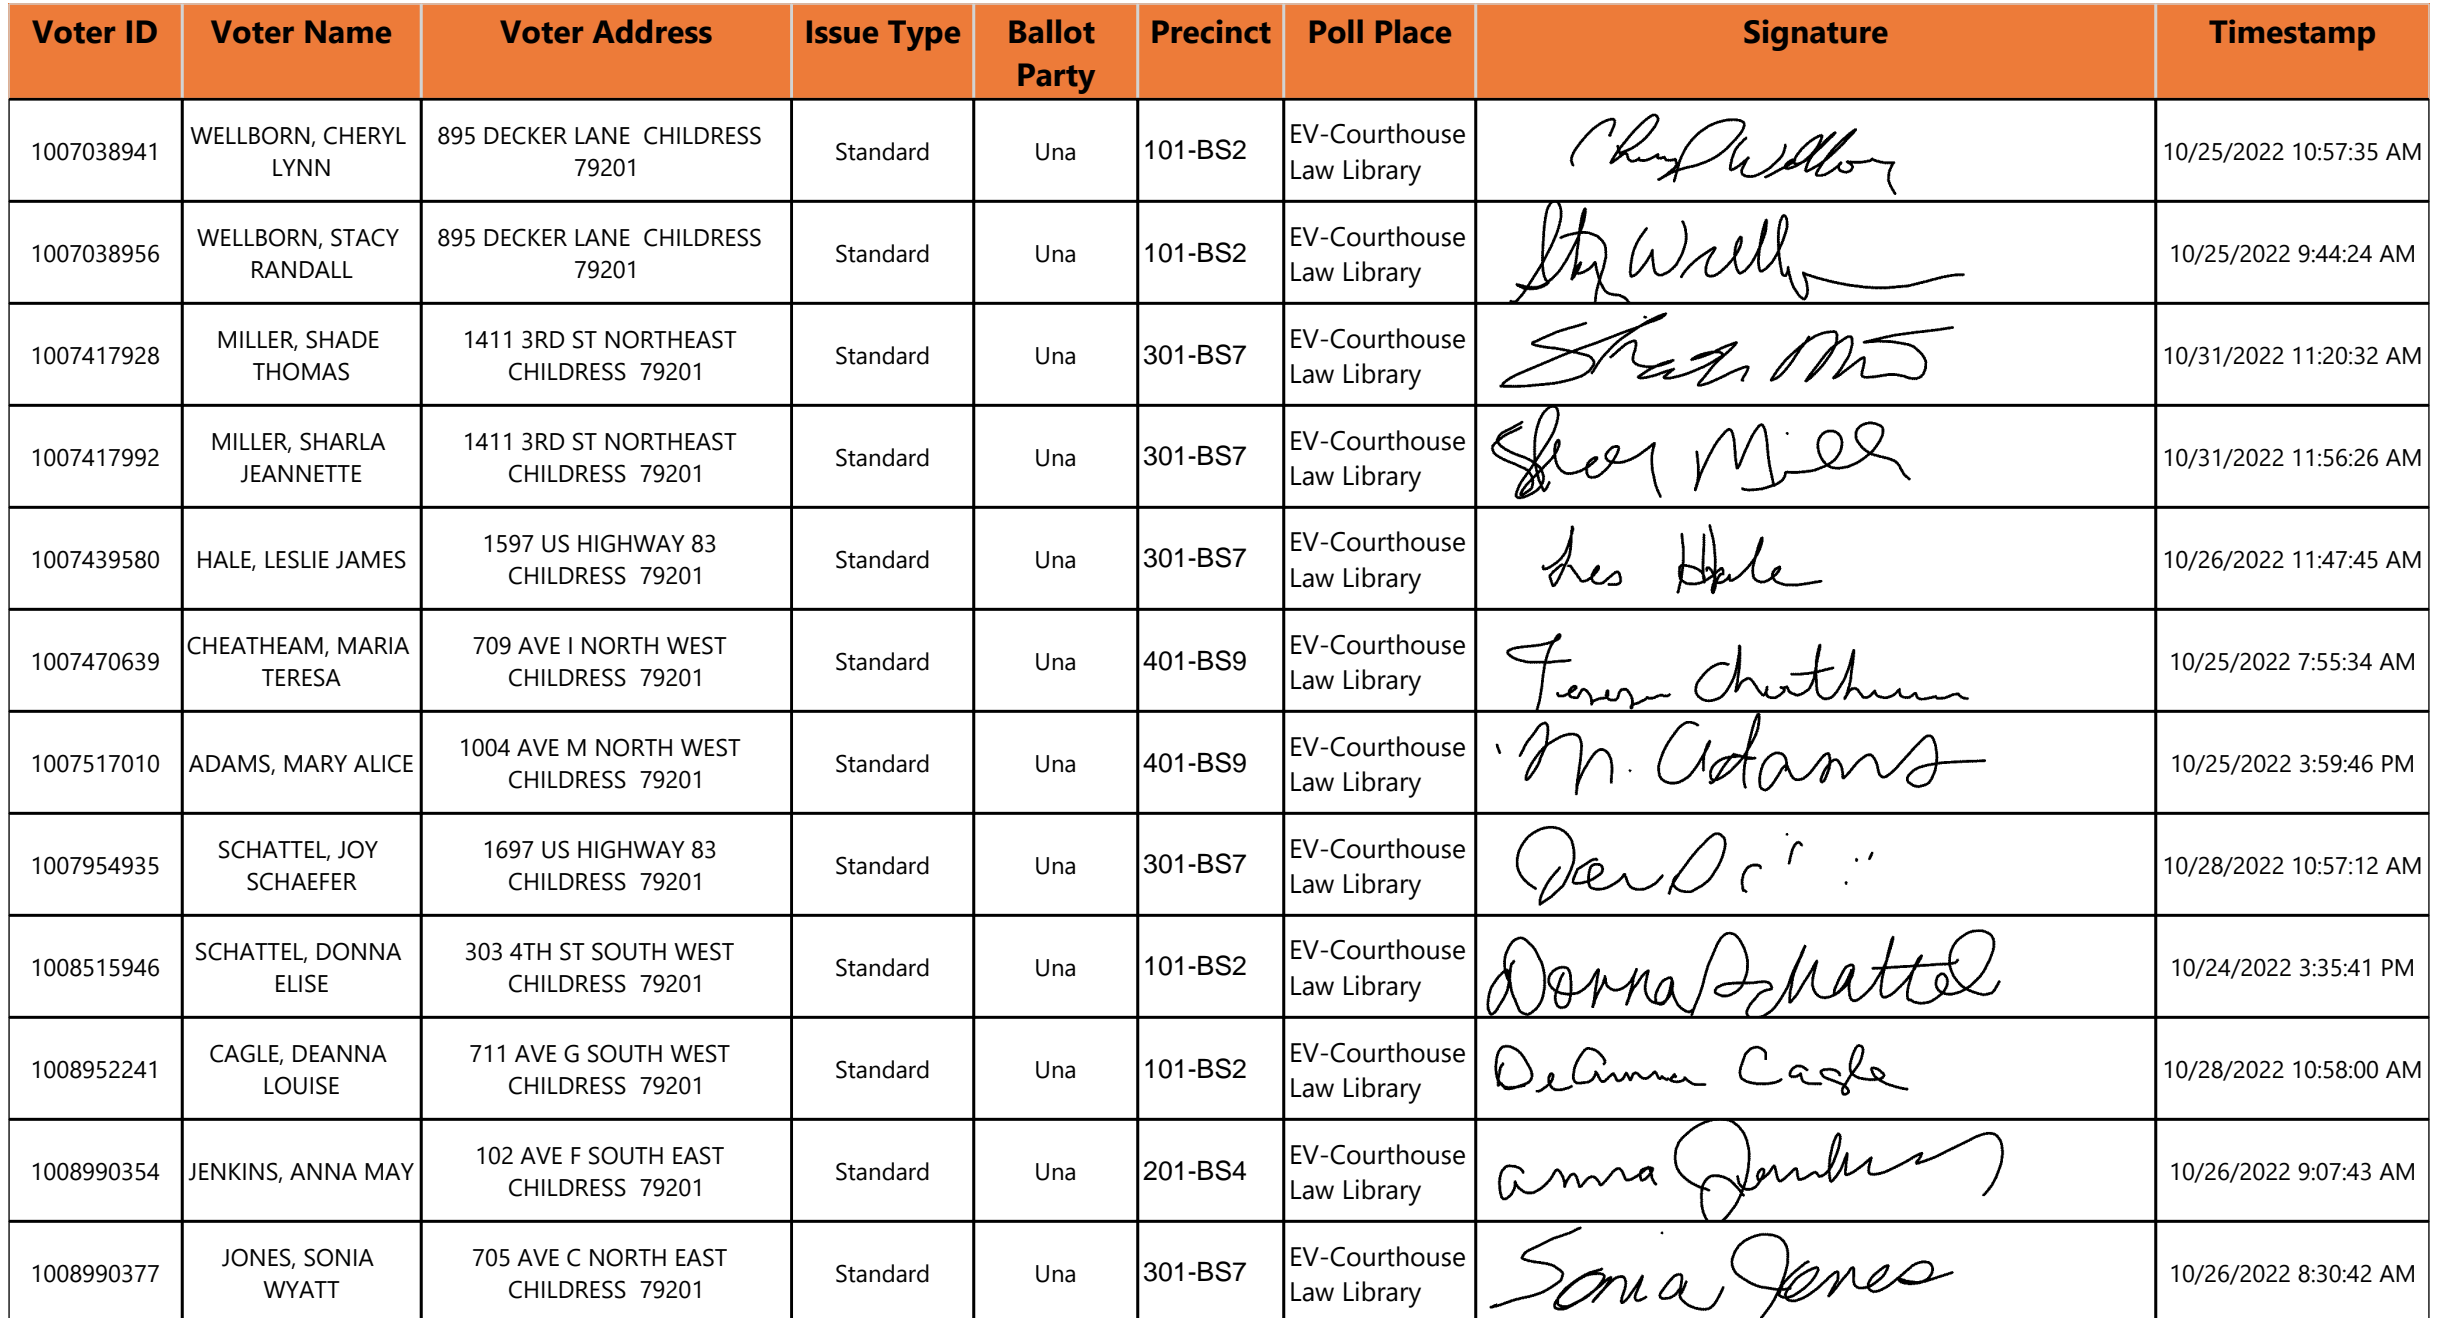 Voter ID Voter Name Voter Address Issue Type Ballot Party Precinct Poll Place Signature Timestamp
1007038941 WELLBORN, CHERYL LYNN 895 DECKER LANE CHILDRESS 79201 Standard Una 101-BS2 EV-Courthouse Law Library 10/25/2022 10:57:35 AM
1007038956 WELLBORN, STACY RANDALL 895 DECKER LANE CHILDRESS 79201 Standard Una 101-BS2 EV-Courthouse Law Library 10/25/2022 9:44:24 AM
1007417928 MILLER, SHADE THOMAS 1411 3RD ST NORTHEAST CHILDRESS 79201 Standard Una 301-BS7 EV-Courthouse Law Library 10/31/2022 11:20:32 AM
1007417992 MILLER, SHARLA JEANNETTE 1411 3RD ST NORTHEAST CHILDRESS 79201 Standard Una 301-BS7 EV-Courthouse Law Library 10/31/2022 11:56:26 AM
1007439580 HALE, LESLIE JAMES 1597 US HIGHWAY 83 CHILDRESS 79201 Standard Una 301-BS7 EV-Courthouse Law Library Les Hale 10/26/2022 11:47:45 AM
1007470639 CHEATHEAM, MARIA TERESA 709 AVE I NORTH WEST CHILDRESS 79201 Standard Una 401-BS9 EV-Courthouse Law Library 10/25/2022 7:55:34 AM
1007517010 ADAMS, MARY ALICE 1004 AVE M NORTH WEST CHILDRESS 79201 Standard Una 401-BS9 EV-Courthouse Law Library M. Adams 10/25/2022 3:59:46 PM
1007954935 SCHATTEL, JOY SCHAEFER 1697 US HIGHWAY 83 CHILDRESS 79201 Standard Una 301-BS7 EV-Courthouse Law Library 10/28/2022 10:57:12 AM
1008515946 SCHATTEL, DONNA ELISE 303 4TH ST SOUTH WEST CHILDRESS 79201 Standard Una 101-BS2 EV-Courthouse Law Library Donna Schattel 10/24/2022 3:35:41 PM
1008952241 CAGLE, DEANNA LOUISE 711 AVE G SOUTH WEST CHILDRESS 79201 Standard Una 101-BS2 EV-Courthouse Law Library DeAnna Cagle 10/28/2022 10:58:00 AM
1008990354 JENKINS, ANNA MAY 102 AVE F SOUTH EAST CHILDRESS 79201 Standard Una 201-BS4 EV-Courthouse Law Library Anna Jenkins 10/26/2022 9:07:43 AM
1008990377 JONES, SONIA WYATT 705 AVE C NORTH EAST CHILDRESS 79201 Standard Una 301-BS7 EV-Courthouse Law Library Sonia Jones 10/26/2022 8:30:42 AM